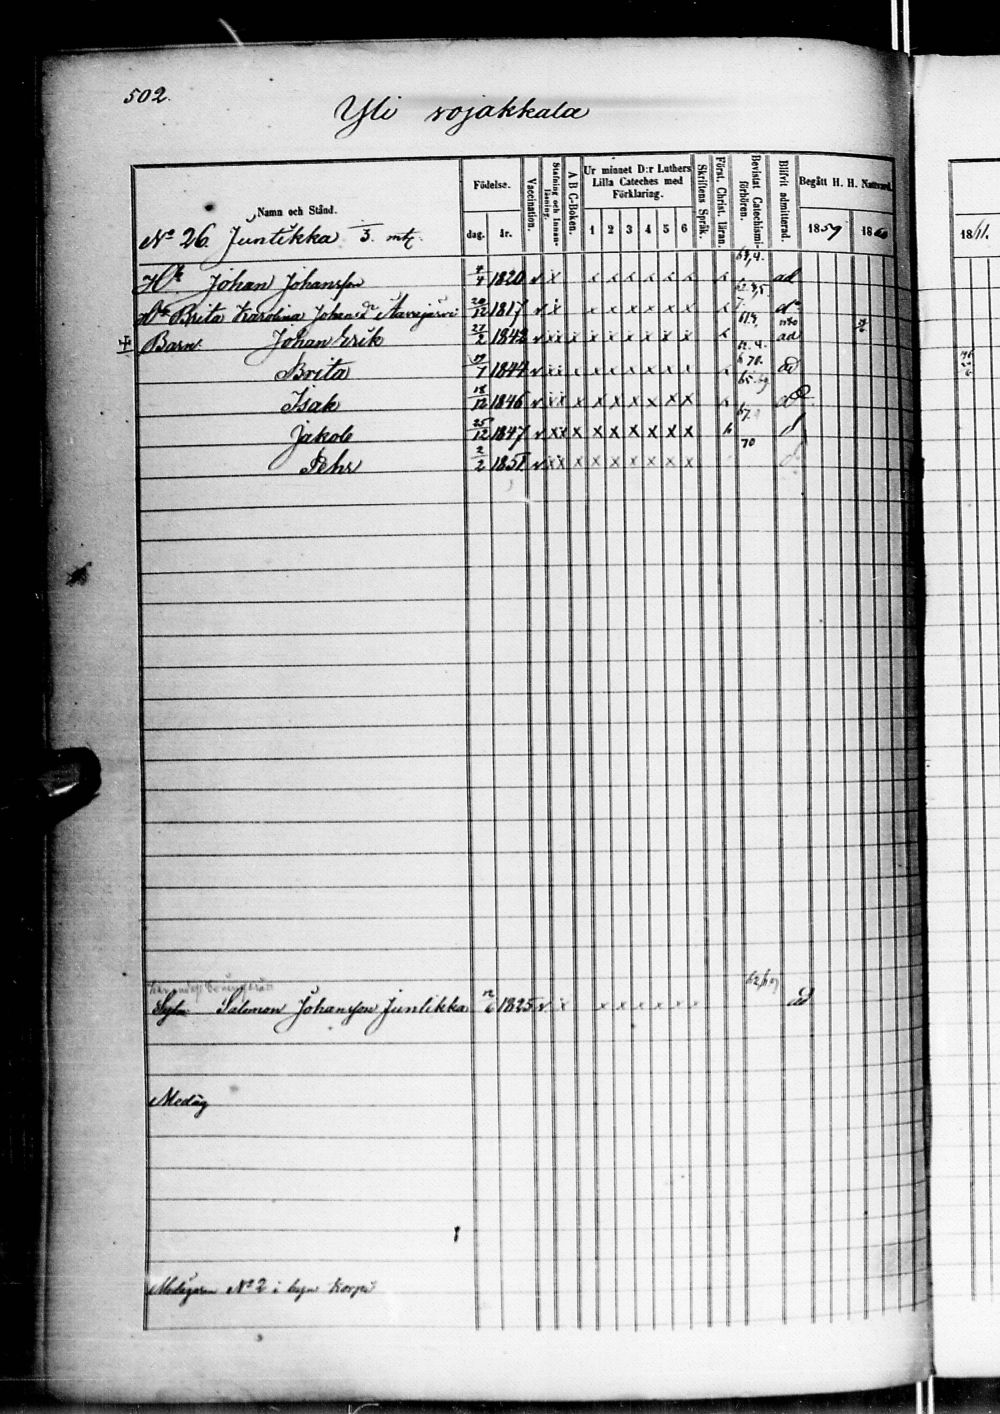 502.
Yli vojakkala
Namn och Stånd.
Födelse.
dag. år.
Vaccination.
Stafning och Innanläsning.
A B C-Boken.
Ur minnet D:r Luthers Lilla Cateches med Förklaring.
1 2 3 4 5 6
Skriftens Språk.
Först. Christ. läran.
Bevistat Catechismiförhören.
Blifvit admitterad.
Begått H. H. Nattvard.
1859 1860
1861.
No 26. Juntikka 3. mtl.
Johan Johansson 4/4 1820 v x x x x x x x ad
Brita Karolina Johansd 20/12 1817 v x x x x x x x do
Barn. Johan Erik 27/2 1842 v x x x x x x x x x ad
Brita 1844 v x x x x x x x x x 70.
Isak 18/12 1846 v x x x x x x x x x
Jakob 25/12 1847 v x x x x x x x x x 67.
Pehr 2/2 1851 v x x x x x x x x x 70
Salomon Johansson Juntikka 1825 v x x x x x x x
Medäg
Medägaren No 2 i byn